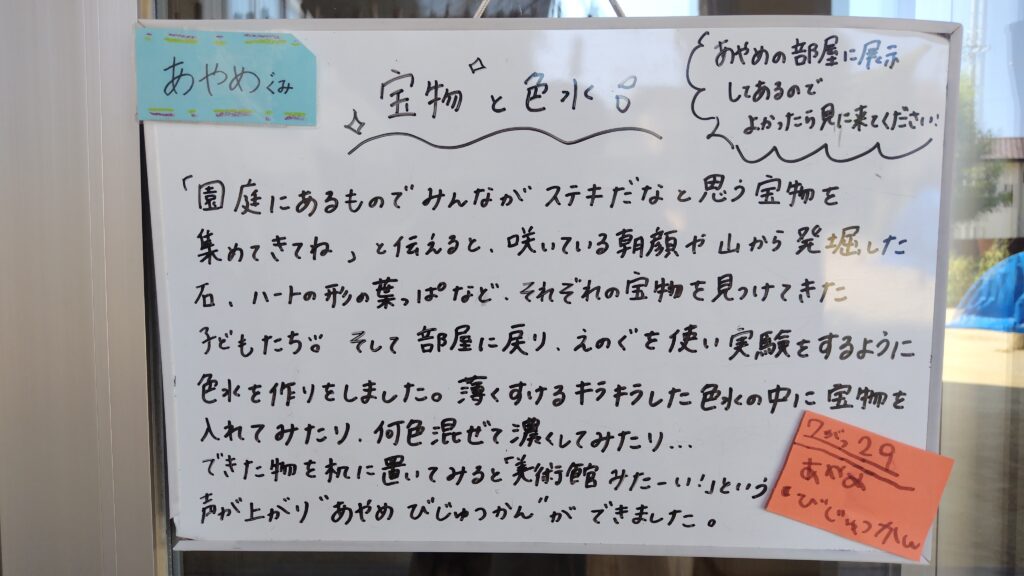 あやめぐみ
宝物と色水
あやめの部屋に展示
してあるので
よかったら見に来てください!
「園庭にあるものでみんながステキだなと思う宝物を
集めてきてね」と伝えると、咲いている朝顔や山から発堀した
石、ハートの形の葉っぱなど、それぞれの宝物を見つけてきた
子どもたち。そして部屋に戻り、えのぐを使い実験をするように
色水を作りをしました。薄くすけるキラキラした色水の中に宝物を
入れてみたり、何色混ぜて濃くしてみたり...
できた物を机に置いてみると「美術館みたーい!」という
声が上がり"あやめ びじゅつかん"ができました。
29
あやめ
びじゅつかん